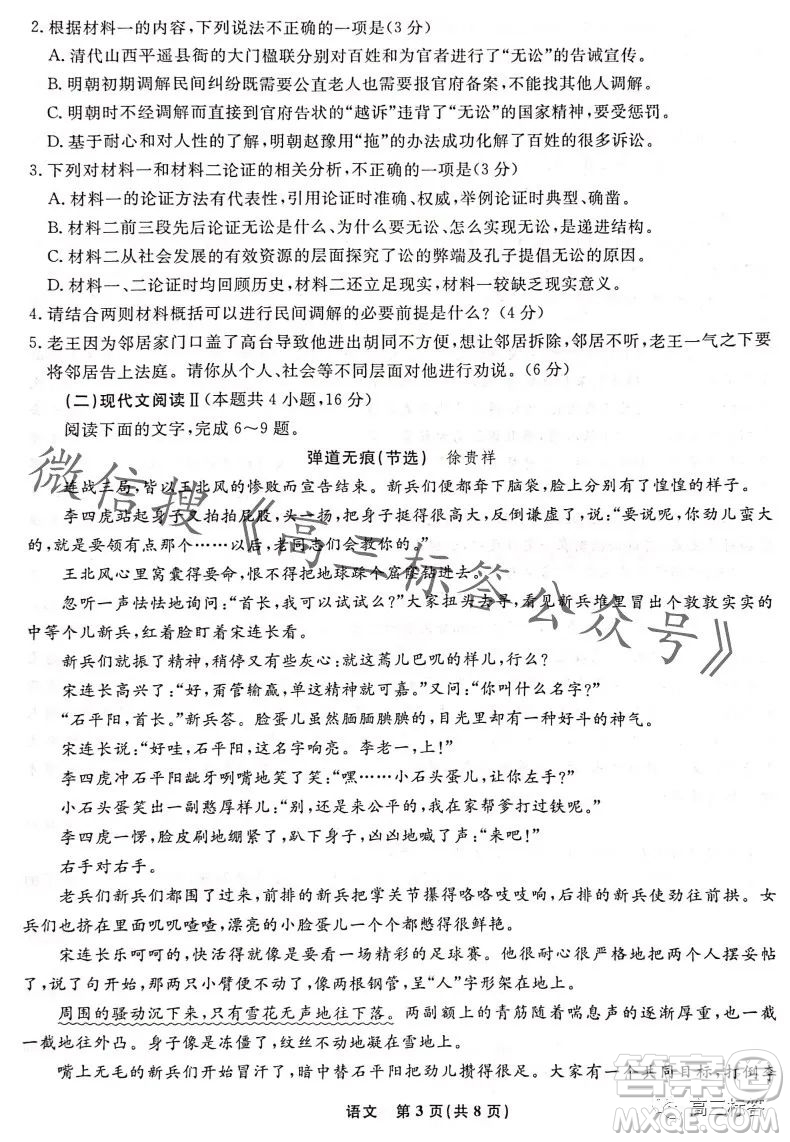 2. 根据材料一的内容，下列说法不正确的一项是(3 分)
A. 清代山西平遥县衙的大门楹联分别对百姓和为官者进行了“无讼”的告诫宣传。
B. 明朝初期调解民间纠纷既需要公直老人也需要报官府备案，不能找其他人调解。
C. 明朝时不经调解而直接向官府告状的“越诉”违背了“无讼”的国家精神，要受惩罚。
D. 基于耐心和对人性的了解，明朝赵豫用“拖”的办法成功化解了百姓的很多诉讼。
3. 下列对材料一和材料二论证的相关分析，不正确的一项是(3 分)
A. 材料一的论证方法有代表性，引用论证时准确、权威，举例论证时典型、确凿。
B. 材料二前三段先后论证无讼是什么、怎么实现无讼，是递进结构。
C. 材料二从社会发展的有效资源的层面探究了讼的弊端及孔子提倡无讼的原因。
D. 材料一、二论证时均回顾历史，材料二还立足现实，材料一较缺乏现实意义。
4. 请结合两则材料概括可以进行民间调解的必要前提是什么？(4 分)
5. 老王因为邻居家门口盖了高台导致他进出胡同不方便，想让邻居拆除，邻居不听，老王一气之下要
将邻居告上法庭。请你从个人、社会等不同层面对他进行劝说。(6 分)
(二)现代文阅读Ⅱ(本题共 4 小题，16 分)
阅读下面的文字，完成 6～9 题。
弹道无痕(节选) 徐贵祥
连战三局，皆以王北风的惨败而宣告结束。新兵们便都奔下脑袋，脸上分别有了惶惶的样子。
李四虎站起身子又拍拍屁股，头一扬，把身子挺得很高大，反倒谦虚了，说：“要说呢，你劲儿蛮大
的，就是要领有点那个……以后，老同志们会教你的。”
王北风心里窝囊得要命，恨不得把地球跺个窟窿钻进去。
忽听一声怯怯地询问：“首长，我可以试试么？”大家扭头去寻，看见新兵堆里冒出个敦敦实实的
中等个儿新兵，红着脸盯着宋连长看。
新兵们先是振了精神，稍停又有些灰心：就这蔫儿巴叽的样儿，行么？
宋连长高兴了：“好，甭管输赢，精神就可嘉。”又问：“你叫什么名字？”
“石平阳，首长。”新兵答。脸蛋儿虽然腼腼腆腆的，目光里却有一种好斗的神气。
宋连长说：“好哇，石平阳，这名字响亮。李老一，上！”
李四虎冲石平阳龇牙咧嘴地笑了笑：“嘿……小石头蛋儿，让你左手？”
小石头蛋笑出一副憨厚样儿：“别价，还是来公平的，我在家帮爹打过铁呢。”
李四虎一愣，脸皮刷地绷紧了，趴下身子，凶凶地喊了声：“来吧！”
右手对右手。
老兵们新兵们都围了过来，前排的新兵把掌关节攥得咯咯吱吱响，后排的新兵使劲往前拱。女
兵们也挤在里面叽叽喳喳，漂亮的小脸蛋儿一个个都憋得很鲜艳。
宋连长乐呵呵的，快活得就像是要看一场精彩的足球赛。他很耐心很严格地把两个人摆妥帖
了，说了句开始，那两只小臂便不动了，像两根钢管，呈“人”字形架在地上。
周围的骚动沉下来，只有雪花无声地往下落。两副额上的青筋随着喘息声的逐渐厚重，也一截
一截地往外凸。身子像是冻僵了，纹丝不动地凝在雪地上。
嘴上无毛的新兵们开始冒汗，暗中替石平阳把劲儿攒得很足。大家有一个共同目标，打倒李
语文 第 3 页(共 8 页)
微信搜《高三标答公众号》
高三标答
答案圈
MXQE.COM